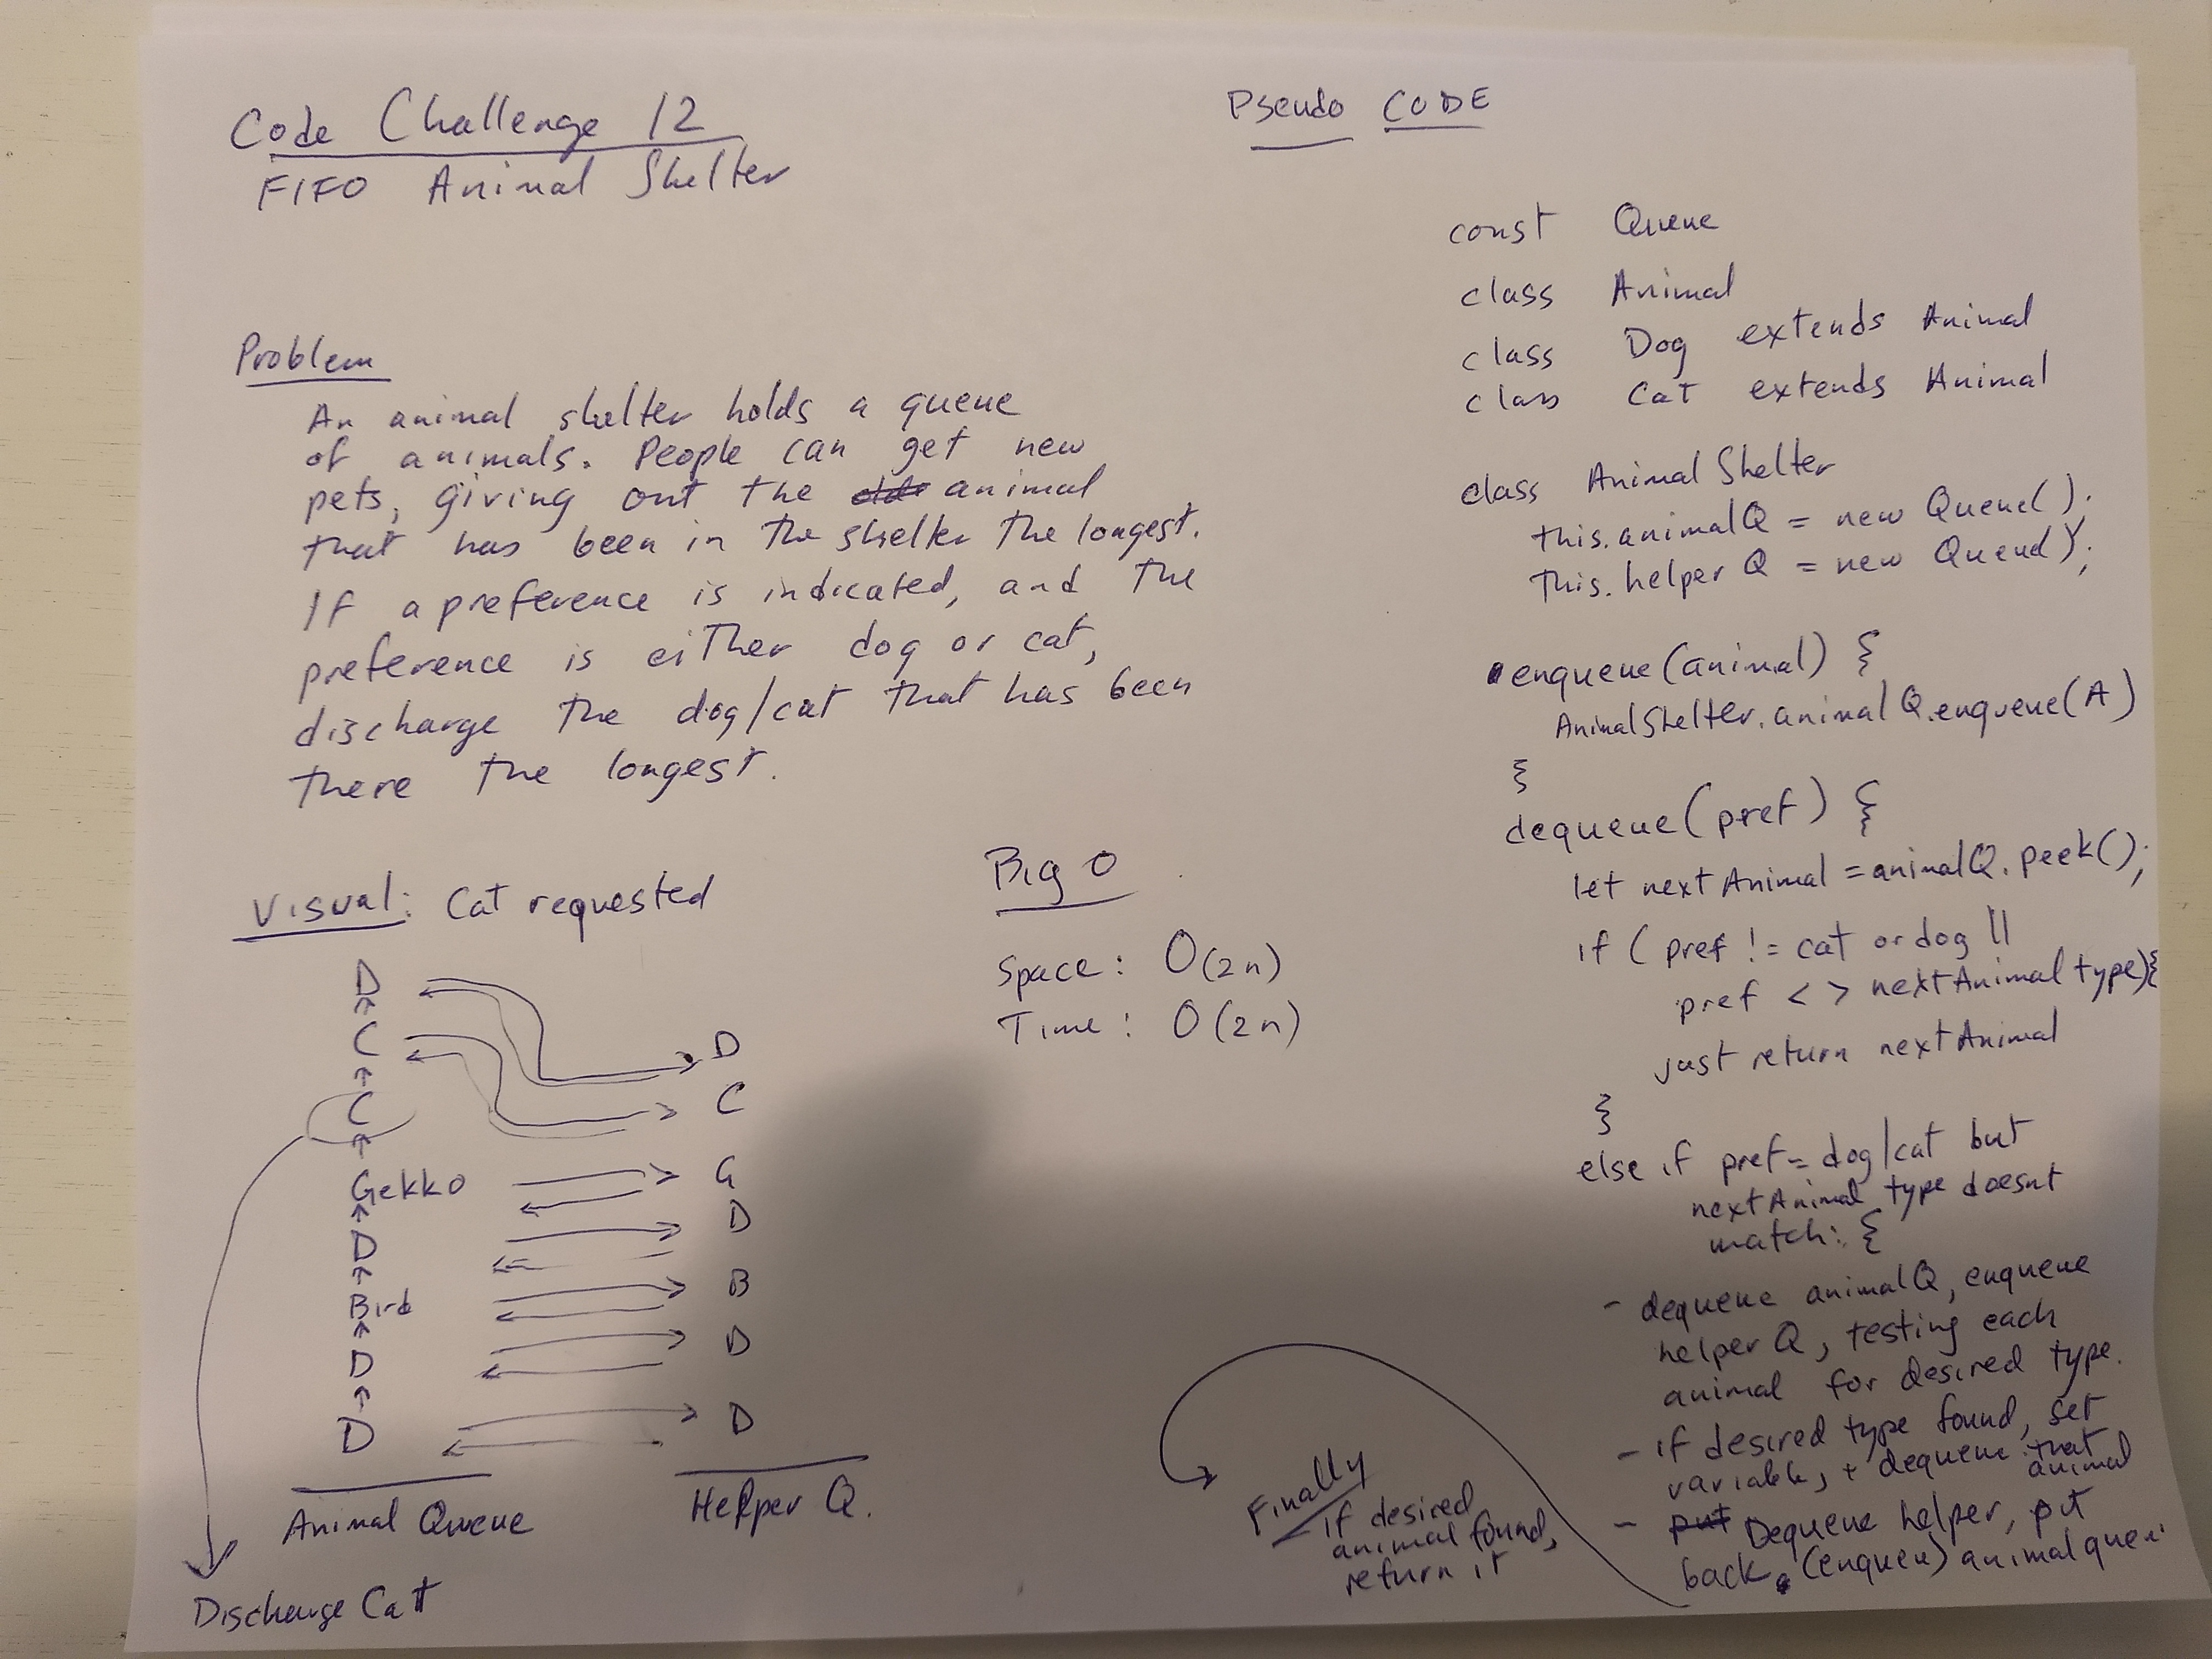 Code Challenge 12
FIFO Animal Shelter
Problem
An animal shelter holds a queue
of animals. People can get new
pets, giving out the animal
that has been in the shelter the longest.
If a preference is indicated, and the
preference is either dog or cat,
discharge the dog/cat that has been
there the longest.
Visual: Cat requested
D
C
C
Gekko
D
Bird
D
D
Animal Queue
Discharge Cat
D
C
G
D
B
D
D
Helper Q.
Big O
Space: O(2n)
Time: O(2n)
Pseudo CODE
const Queue
class Animal
class Dog extends Animal
class Cat extends Animal
class Animal Shelter
this.animalQ = new Queue();
this.helperQ = new Queue();
enqueue(animal) {
AnimalShelter.animalQ.enqueue(A)
}
dequeue(pref) {
let nextAnimal = animalQ.peek();
if (pref != cat or dog ||
pref < > nextAnimal type){
just return nextAnimal
}
else if pref = dog/cat but
nextAnimal type doesnt
match: {
- dequeue animalQ, enqueue
helperQ, testing each
animal for desired type.
- if desired type found, set
variable, + dequeue that
animal
- put Dequeue helper, put
back (enqueu) animal queu
Finally
- if desired
animal found,
return it